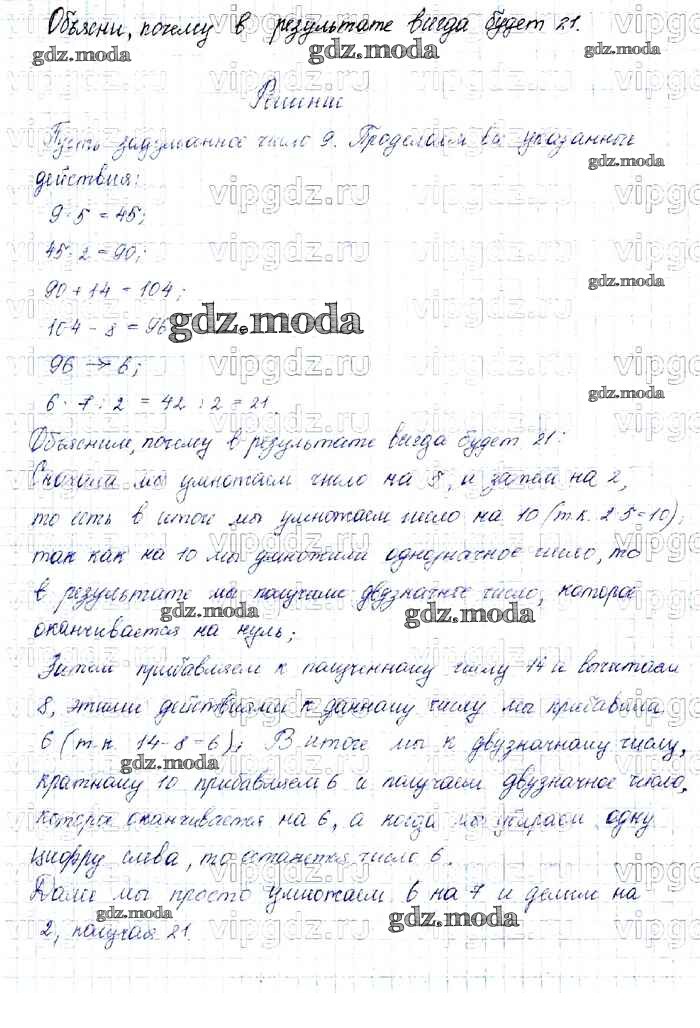 Объясни, почему в результате всегда будет 21.
Решение
Пусть задуманное число 9. Проделаем все указанные
действия:
9·5=45;
45·2=90;
90+14=104;
104-8=96
96→6;
6·7:2=42:2=21.
Объясним, почему в результате всегда будет 21:
Сначала мы умножаем число на 5, и затем на 2,
то есть в итоге мы умножаем число на 10 (т.к. 2·5=10);
так как на 10 мы умножили однозначное число, то
в результате мы получили двузначное число, которое
оканчивается на нуль;
Затем прибавляем к полученному числу 14 и вычитаем
8, этими действиями к данному числу мы прибавили
6 (т.к. 14-8=6); В итоге мы к двузначному числу,
кратному 10 прибавляем 6 и получаем двузначное число,
которое оканчивается на 6, а когда мы убираем одну
цифру слева, то останется число 6.
Далее мы просто умножаем 6 на 7 и делим на
2, получая 21
gdz.moda
vipgdz.ru